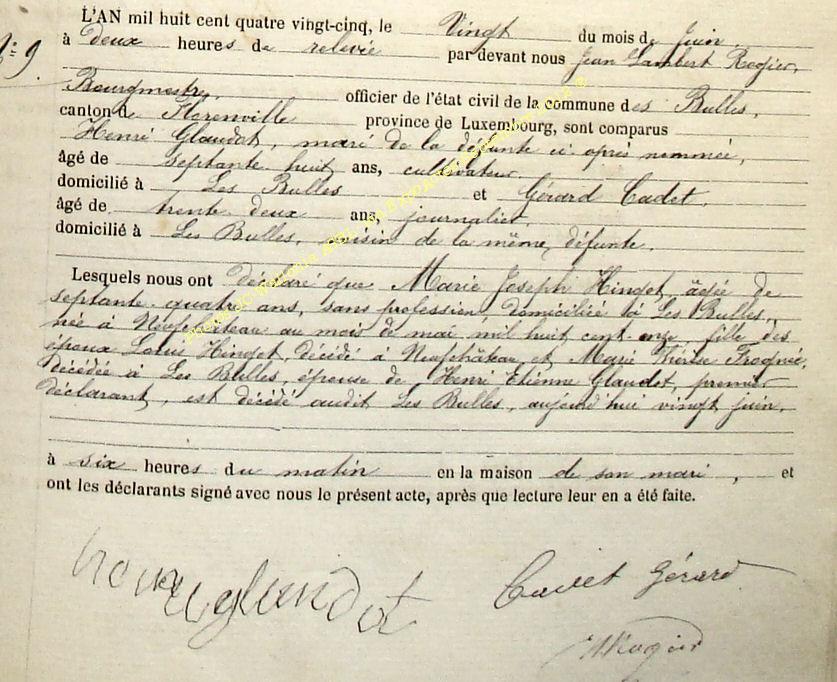 L'AN mil huit cent quatre vingt-cinq, le Vingt du mois de Juin,
N° 9. à deux heures de relevée par devant nous Jean Lambert Rogier,
Bourgmestre, officier de l'état civil de la commune des Bulles,
canton de Florenville province de Luxembourg, sont comparus
Henri Glaudot, mari de la défunte ci après nommée,
âgé de septante huit ans, cultivateur
domicilié à Les Bulles et Gérard Cadet,
âgé de trente deux ans, journalier,
domicilié à Les Bulles, voisin de la même défunte.
Lesquels nous ont déclaré que Marie Joseph Hingot, âgée de
septante quatre ans, sans profession, domiciliée à Les Bulles,
née à Neufchâteau au mois de mai mil huit cent onze, fille des
époux Louis Hingot, décédé à Neufchâteau et Marie Thérèse
décédée à Les Bulles, épouse de Henri Etienne Glaudot, premier
déclarant, est décédé audit Les Bulles, aujourd'hui vingt juin,
à six heures du matin en la maison de son mari, et
ont les déclarants signé avec nous le présent acte, après que lecture leur en a été faite.
henri glaudot Cadet Gérard
Rogier